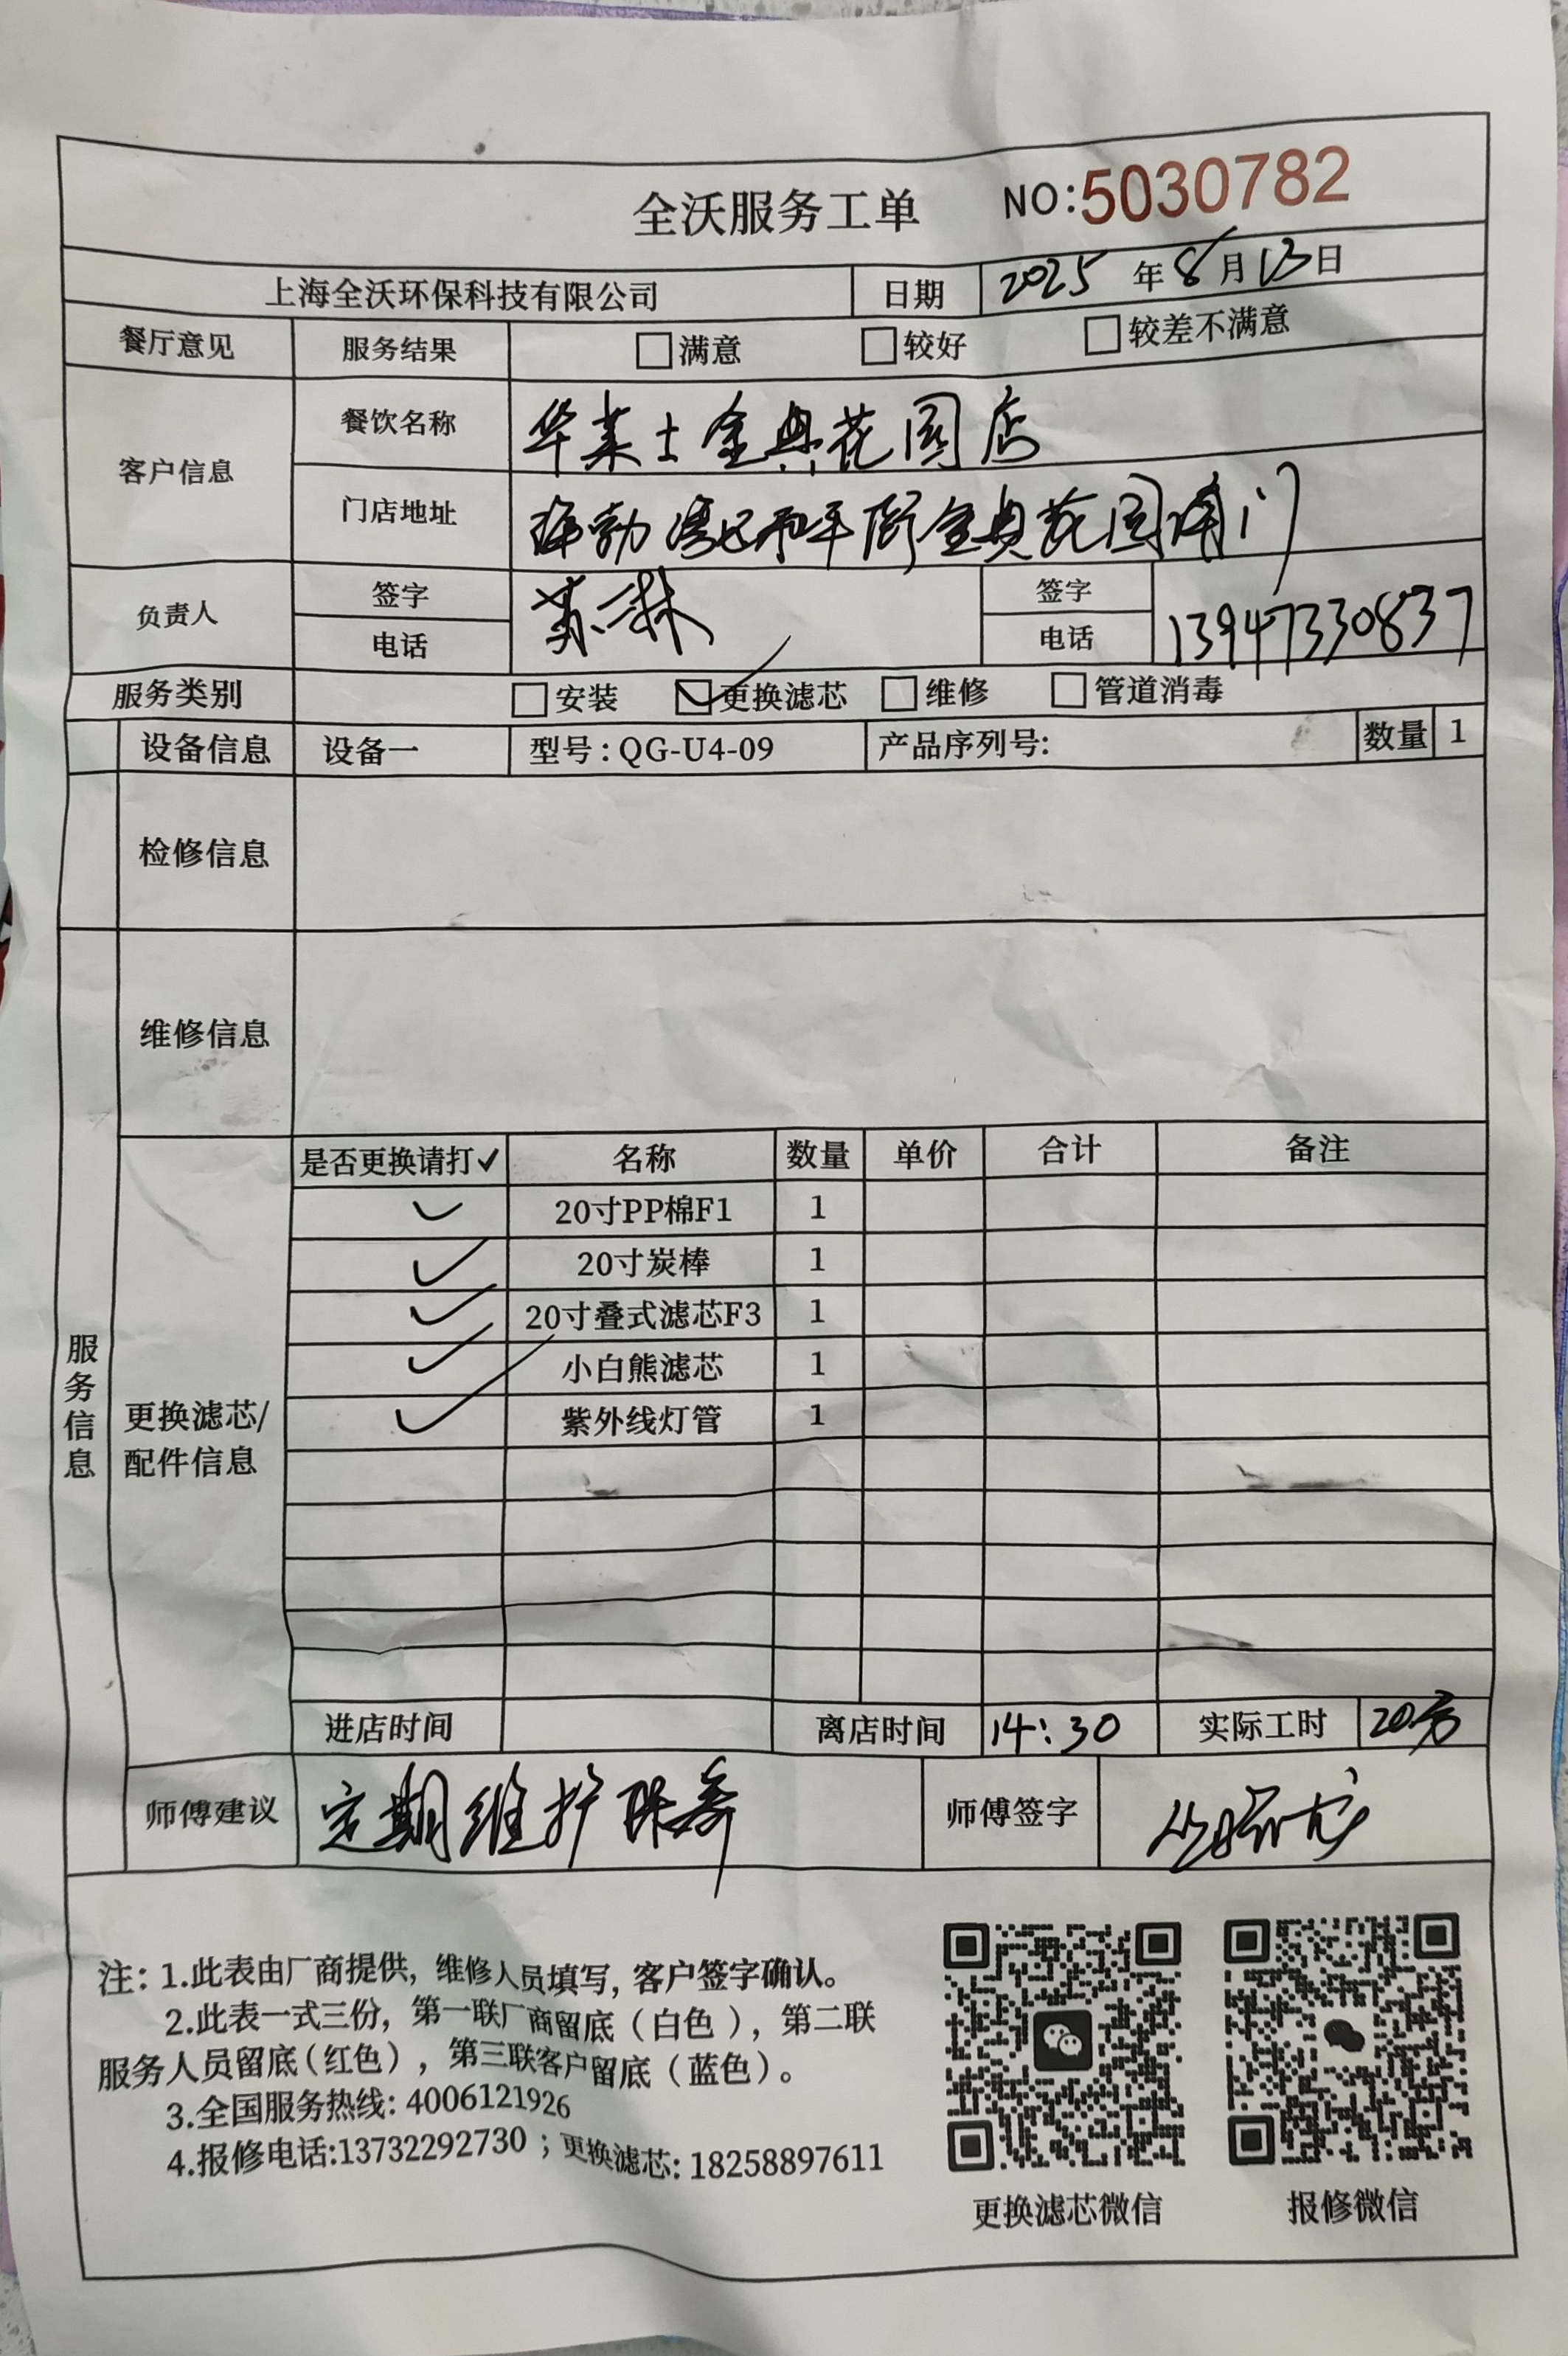 全沃服务工单 NO:5030782
上海全沃环保科技有限公司 日期 2025 年 8 月 13 日
餐厅意见 服务结果 □满意 □较好 □较差不满意
客户信息 餐饮名称 华莱士金典花园店
门店地址 海勃湾区和平街金典花园南门
负责人 签字 苏 林 签字
电话 电话 13947330837
服务类别 □安装 ☑更换滤芯 □维修 □管道消毒
设备信息 设备一 型号:QG-U4-09 产品序列号: 数量 1
检修信息
维修信息
服务信息
更换滤芯/
配件信息
是否更换请打✓ 名称 数量 单价 合计 备注
✓ 20寸PP棉F1 1
✓ 20寸炭棒 1
✓ 20寸叠式滤芯F3 1
✓ 小白熊滤芯 1
✓ 紫外线灯管 1
进店时间 离店时间 14:30 实际工时 20分
师傅建议 定期维护保养 师傅签字
注: 1.此表由厂商提供, 维修人员填写, 客户签字确认。
2.此表一式三份, 第一联厂商留底(白色), 第二联
服务人员留底(红色), 第三联客户留底(蓝色)。
3.全国服务热线: 4006121926
4.报修电话:13732292730 ; 更换滤芯: 18258897611
更换滤芯微信 报修微信